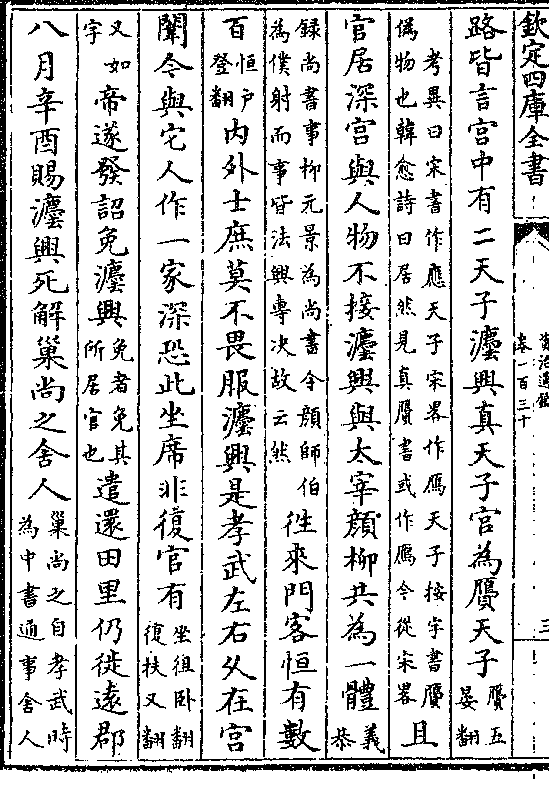 欽定四庫全書
資治通鑑
卷一百三十
三
路皆言宮中有二天子灋興真天子官為贗天子贗五
晏翻
考異曰宋書作應天子宋畧作鴈天子按字書贗
偽物也韓愈詩曰居然見真贗書或作鴈今從宋畧且
官居深宮與人物不接灋興與太宰顏柳共為一體義
恭
録尚書事柳元景為尚書令顔師伯
為僕射而事皆法興專决故云然往來門客恒有數
百恒户
登翻内外士庶莫不畏服灋興是孝武左右乆在宮
闈今與它人作一家深恐此坐席非復官有坐徂卧翻
復扶又翻
又如
字帝遂發詔免灋興免者免其
所居官也遣還田里仍徙遠郡
八月辛酉賜灋興死解巢尚之舍人巢尚之自孝武時
為中書通事舍人